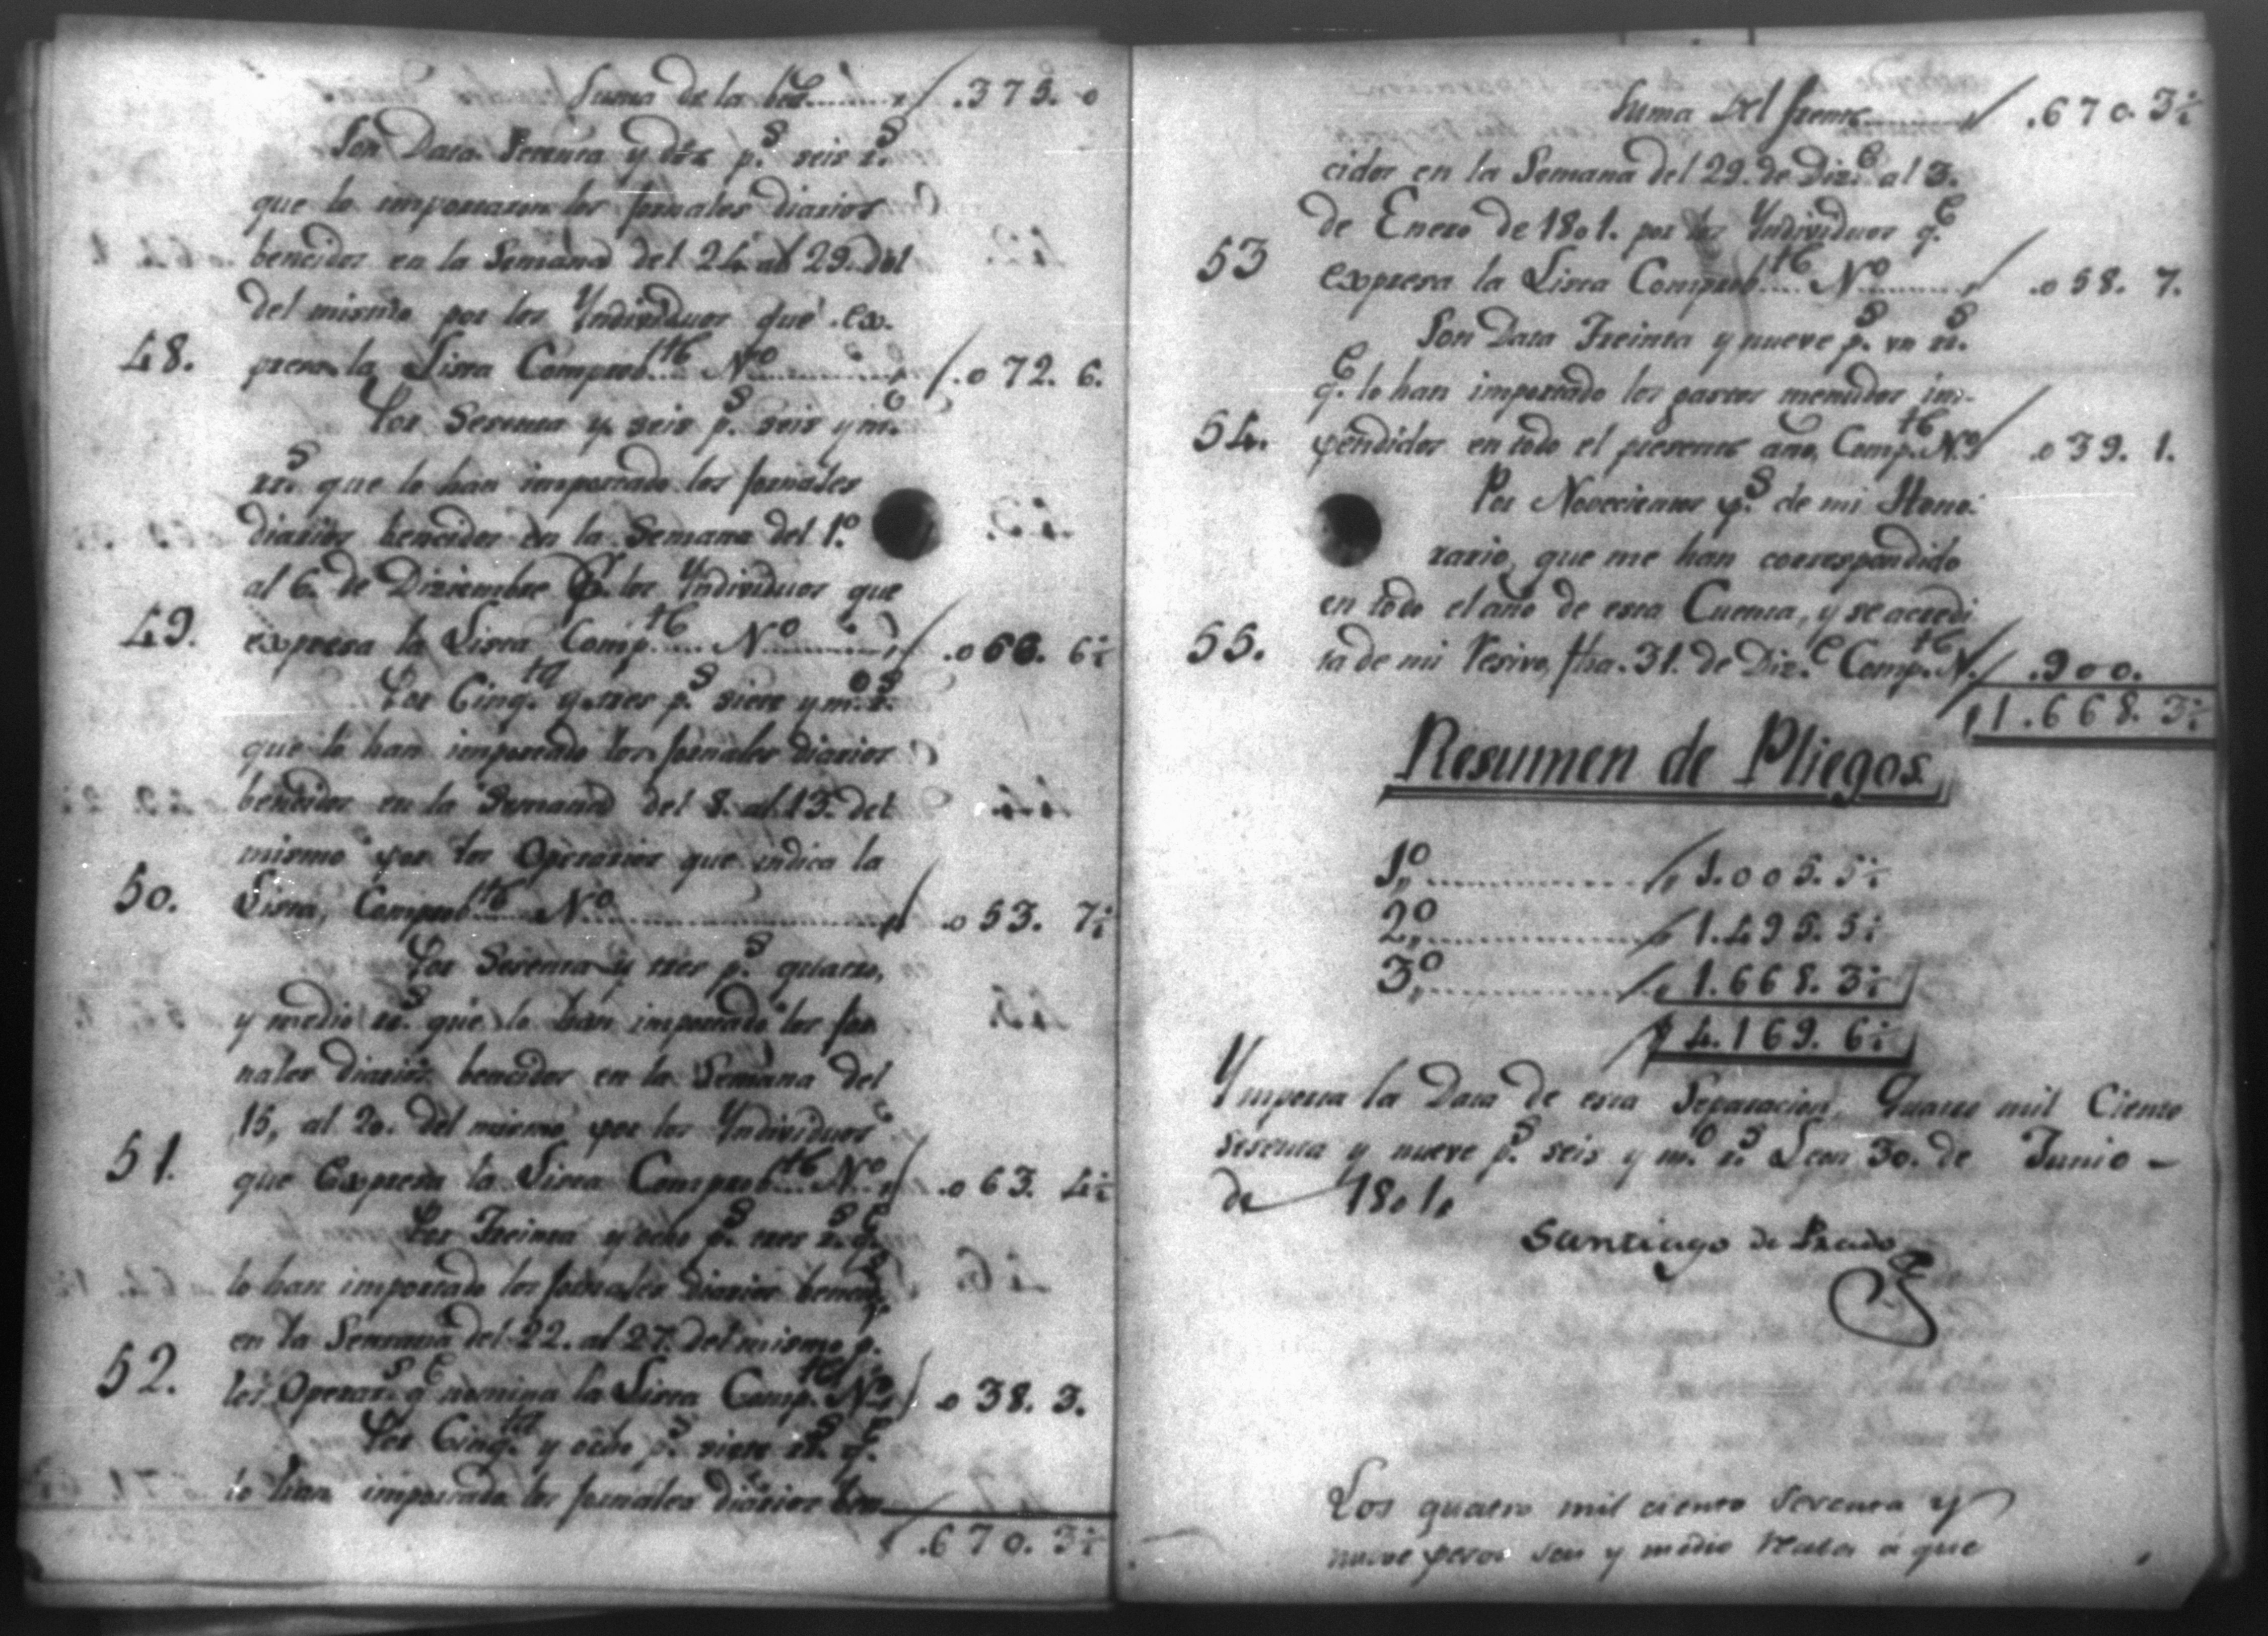 Suma de la bta........ 375. 0
Son Data Setenta y dos p.s seis r.s
que lo importaron los jornales diarios
bencidos en la Semana del 24 al 29. del
del mismo por los Yndividuos que ex-
48. presa la Lista Comprob.te N.o ........ 072. 6.
Por Sesenta y seis p.s seis y m.o
rr.s que lo han importado los jornales
diarios bencidos en la Semana del 1.o
al 6. de Diziembre P. los Yndividuos que
49. expresa la Lista Comp.te N.o ........ 066. 6½
Por Cinq.ta y tres p.s siete y m.o r.s
que lo han importado los jornales diarios
bencidos en la Semana del 8. al 13. del
mismo por los Operarios que indica la
50. Lista, Comprob.te N.o ........ 053. 7½
Por Sesenta y tres p.s quatro,
y medio rr.s que lo han importado los jor
nales diarios bencidos en la Semana del
15, al 20. del mismo por los Yndividuos
51. que Expresa la Lista Comprob.te N.o 063. 4½
Por Treinta y ocho p.s tres r.s q.e
lo han importado los jornales diarios bencid.s
en la Semana del 22. al 27. del mismo p.r
52. los Operar.s q.e nomina la Lista Comp.te N.o 038. 3.
Por Cinq.ta y ocho p.s siete rr.s q.e
lo han importado los jornales diarios ben
.670. 3½
Suma del frente ........ .670. 3½
cidos en la Semana del 29. de Diz.e al 3.
de Enero de 1801. por los Yndividuos q.e
53 expresa la Lista Comprob.te N.o ........ 058. 7.
Son Data Treinta y nueve p.s un rr.s
q.e lo han importado los gastos menudos im-
54. pendidos en todo el presente año, Comp.te N.o 039. 1.
Por Novecientos p.s de mi Hono-
rario, que me han correspondido
en todo el año de esta Cuenta, y se acredi
55. ta de mi Resivo, fha. 31. de Diz.e Comp.te N. .900.
1.668. 3½
Resumen de Pliegos
1.o ........ 1.005. 5½
2.o ........ 1.495. 5½
3.o ........ 1.668. 3½
4.169. 6½
Ymporta la Data de esta Separacion, Quatro mil Ciento
sesenta y nueve p.s seis y m.o r.s Leon 30. de Junio -
de 1801.
Santiago de Prado
Los quatro mil ciento sesenta y
nueve pesos seis y medio reales á que